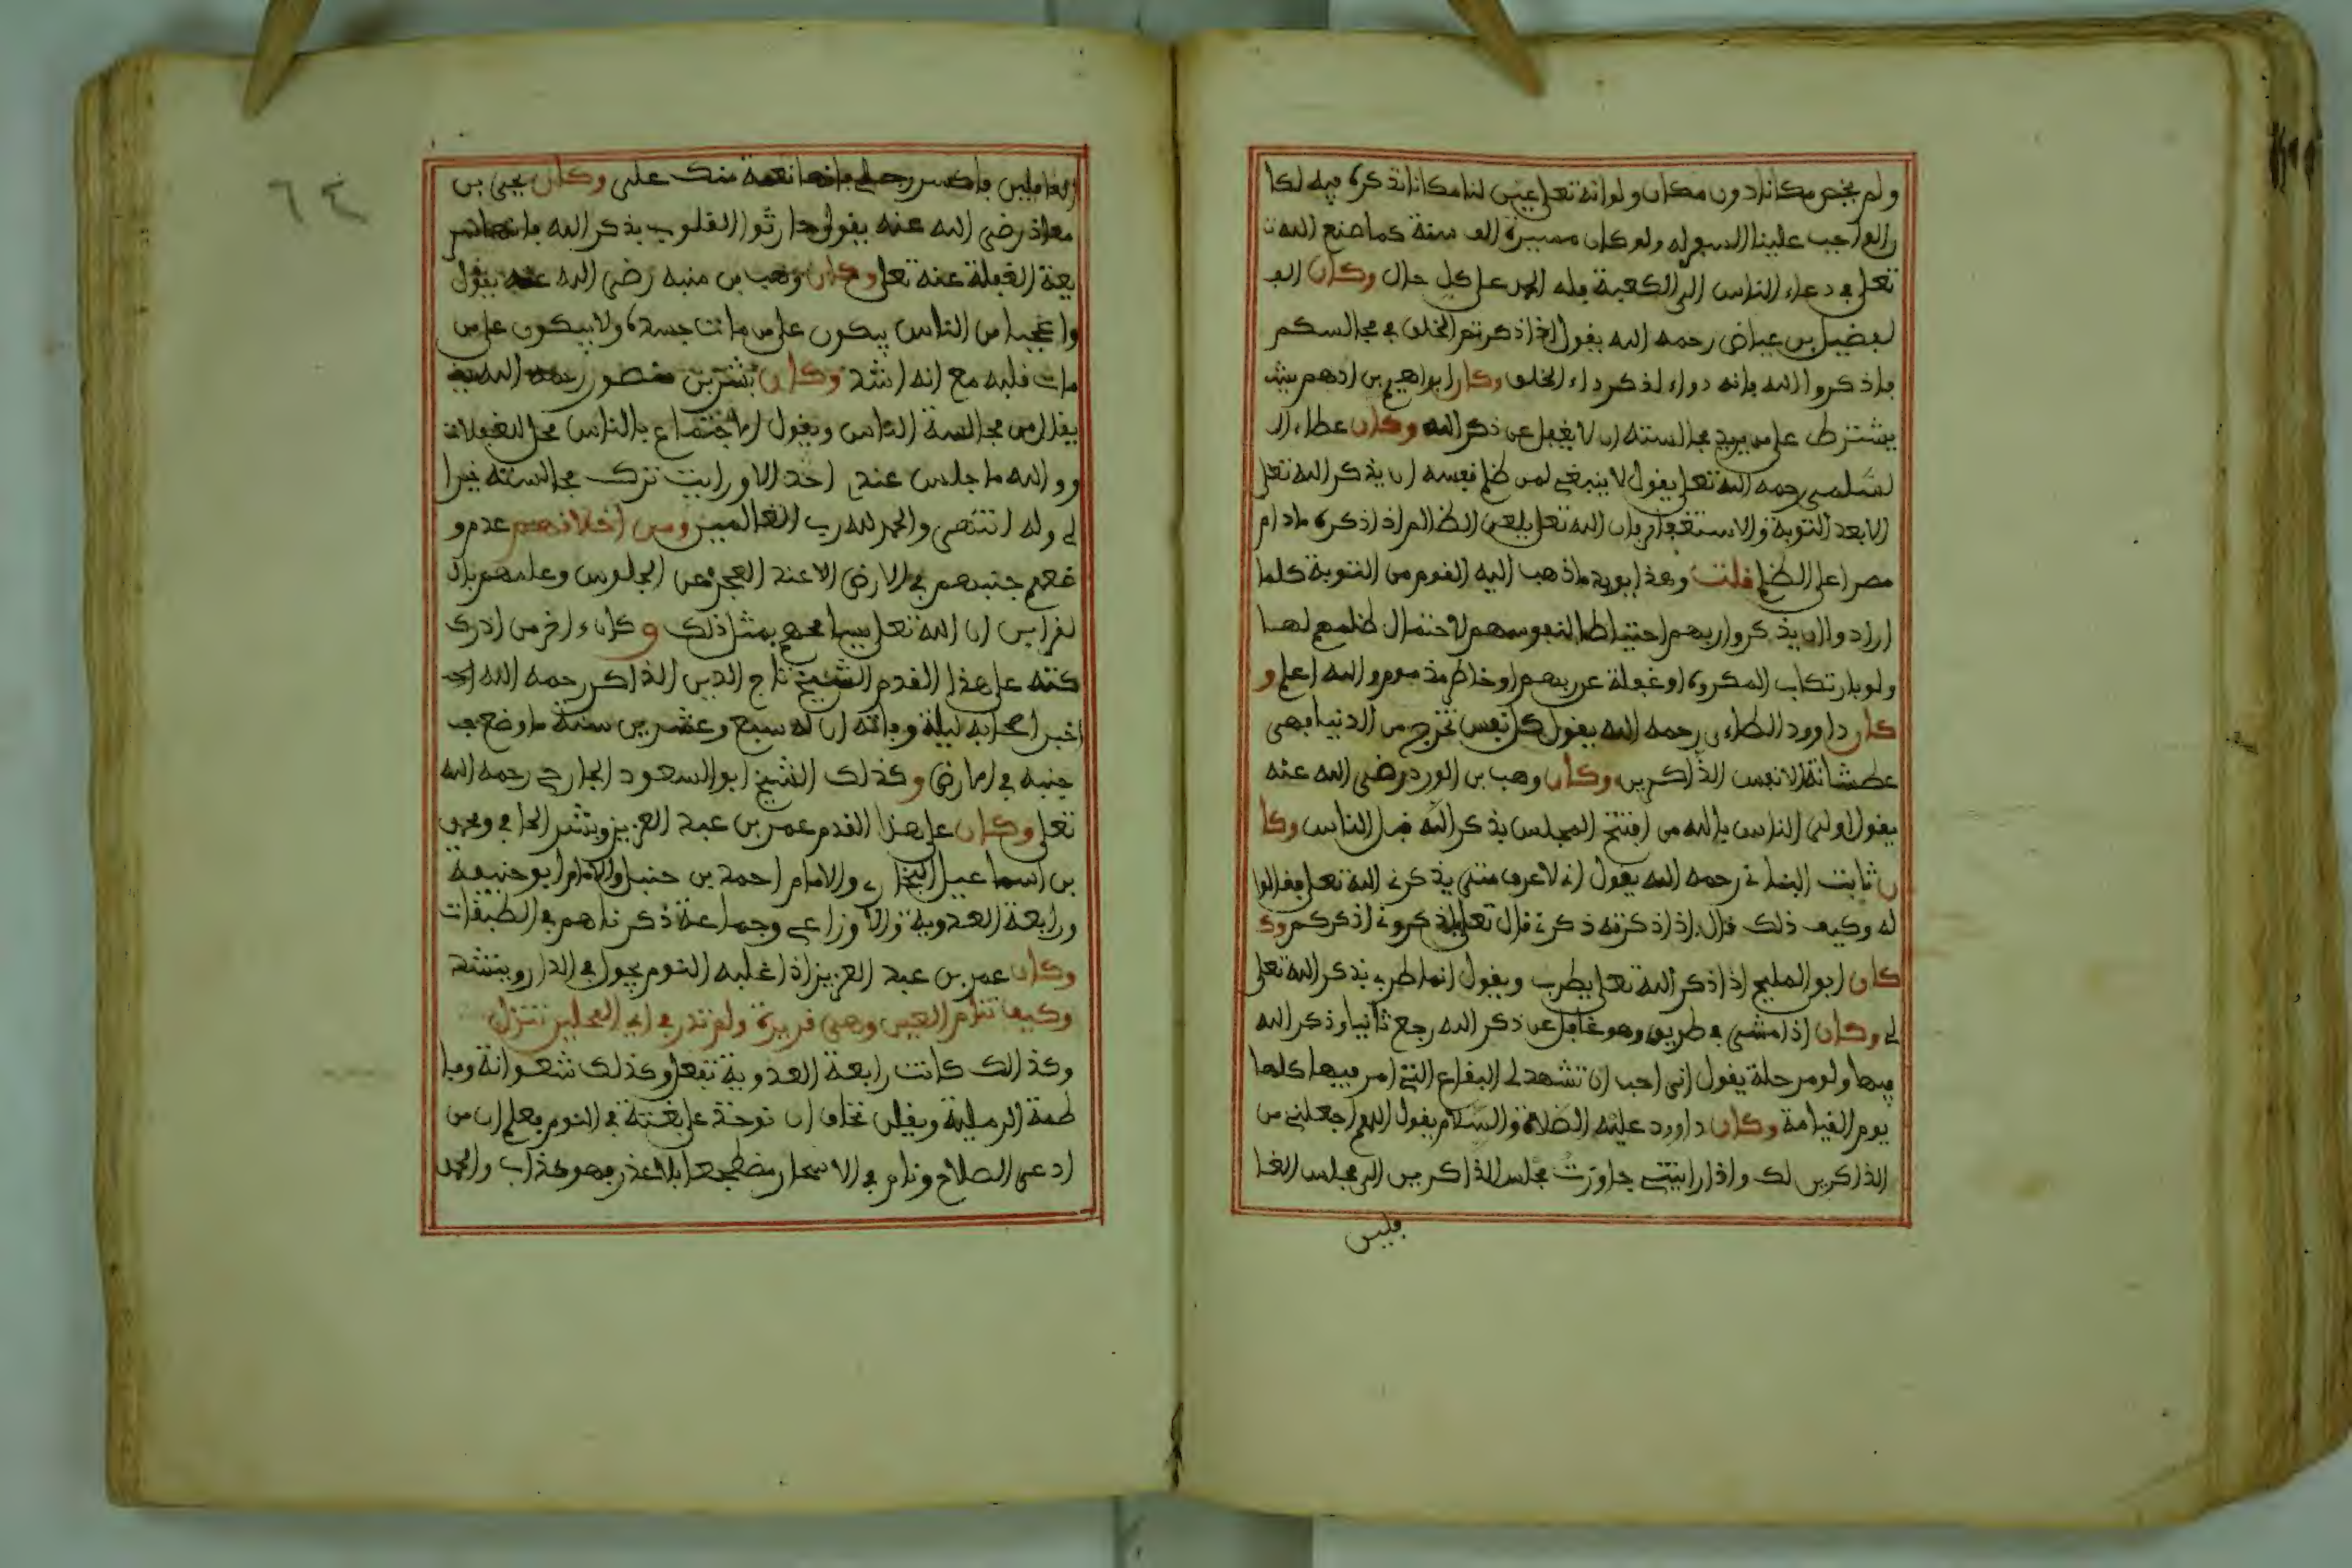 ولم يخص مكانا دون مكان ولو انه تعلى عين لنا مكانا نذكره فيه لكا
ن الواجب علينا السعي له ولو كان مسيرة الف سنة كما صنع الله ت
تعلى في دعاء الناس الى الكعبة فله الحمد على كل حال وكان الف
لفضيل بن عياض رحمه الله يقول اذا ذكرتم الخلق في مجالسكم
فاذكروا الله فانه دواء لذكر داء الخلق وكان ابراهيم بن ادهم يش
يشترط على من يريد مجالسته ان لا يغفل عن ذكر الله وكان عطاء ال
لسلمي رحمه الله تعلى يقول لا ينبغي لمن ظلم نفسه ان يذكر الله تعلى
الا بعد التوبة والاستغفار فان الله تعلى يلعن الظالم اذا ذكره مادام
مصرا على الظلم قلت وهذا يويد ما ذهب اليه القوم من التوبة كلما
ارادوا ان يذكروا ربهم احتياطا لنفوسهم لاحتمال ظلمهم لها
ولو بارتكاب المكروه او غفلة عن ربهم او خاطر مذموم والله اعلم و
كان داوود الطاءي رحمه الله يقول كل نفس تخرج من الدنيا فهي
عطشانة الا نفس الذاكرين وكان وهب بن الورد رضي الله عنه
يقول اولى الناس بالله من افتتح المجلس بذكر الله قبل الناس وكا
ن ثابت البناني رحمه الله يقول اني لاعرف متى يذكرني الله تعلى فقالوا
له وكيف ذلك قال اذا ذكرته ذكرني قال تعلى فاذكروني اذكركم وك
كان ابو المليح اذا ذكر الله تعلى يطرب ويقول انما طربي بذكر الله تعلى
لي وكان اذا مشى في طريق وهو غافل عن ذكر الله رجع ثانيا وذكر الله
فيها ولو مرحلة يقول اني احب ان تشهد لي البقاع التي امر فيها كلها
يوم القيامة وكان داوود عليه الصلاة والسلام يقول اللهم اجعلني من
الذاكرين لك واذا رايتني جاوزت مجلس الذاكرين الى مجلس الغا
فلين
٦٤
الغافلين فاكسر رجلي فانها نعمة منك علي وكان يحيى بن
معاذ رضي الله عنه يقول حادثوا القلوب بذكر الله فانها سر
يعة الغفلة عنه تعلى وكان وهب بن منبه رضي الله عنه يقول
واعجبا من الناس يبكون على من مات جسده ولا يبكون على من
مات قلبه مع انه اشد وكان بشر بن منصور رحمه الله
يفلل من مجالسة الناس ويقول الاجتماع بالناس محل الغفلات
ووالله ما جلس عندي احد الا ورايت ترك مجالسته خيرا
لي وله انتهى والحمد لله رب العالمين ومن اخلاقهم عدم و
ضعهم جنبهم في الارض الا عند العجز عن الجلوس وعلمهم بال
لقراين ان الله تعلى يسامحهم بمثل ذلك وكان ءاخر من ادرك
كته على هذا القدم الشيخ تاج الدين الذاكر رحمه الله
اخبر اصحابه ليلة وفاته ان له سبع وعشرين سنة ما وضع ج
جنبه في الارض وكذلك الشيخ ابو السعود الجارحي رحمه الله
تعلى وكان على هذا القدم عمر بن عبد العزيز وبشر الحافي ومحمد
بن اسماعيل البخاري والامام احمد بن حنبل والامام ابو حنيفة
ورابعة العدوية والاوزاعي وجماعة ذكرناهم في الطبقات
وكان عمر بن عبد العزيز اذا غلبه النوم يجول في الدار وينشد
وكيف تنام العين وهي قريرة ولم تدر في اي المحلين تنزل
وكذالك كانت رابعة العدوية تفعل وكذلك شعوانة وفا
طمة الرملية ويقلن نخاف ان نوخذ على بغتة في النوم فعلم ان من
ادعى الصلاح ونام في الاسحار مضطجعا بلا عذر فهو كذاب والحمد